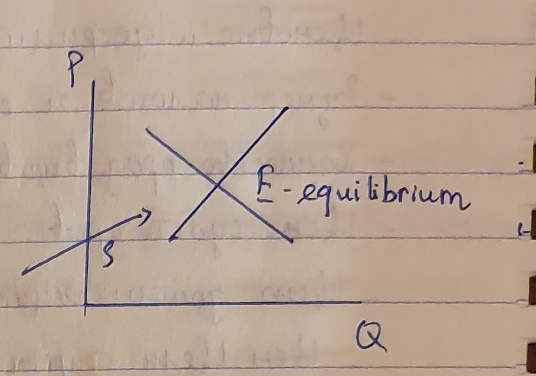 P
E - equilibrium
S
Q